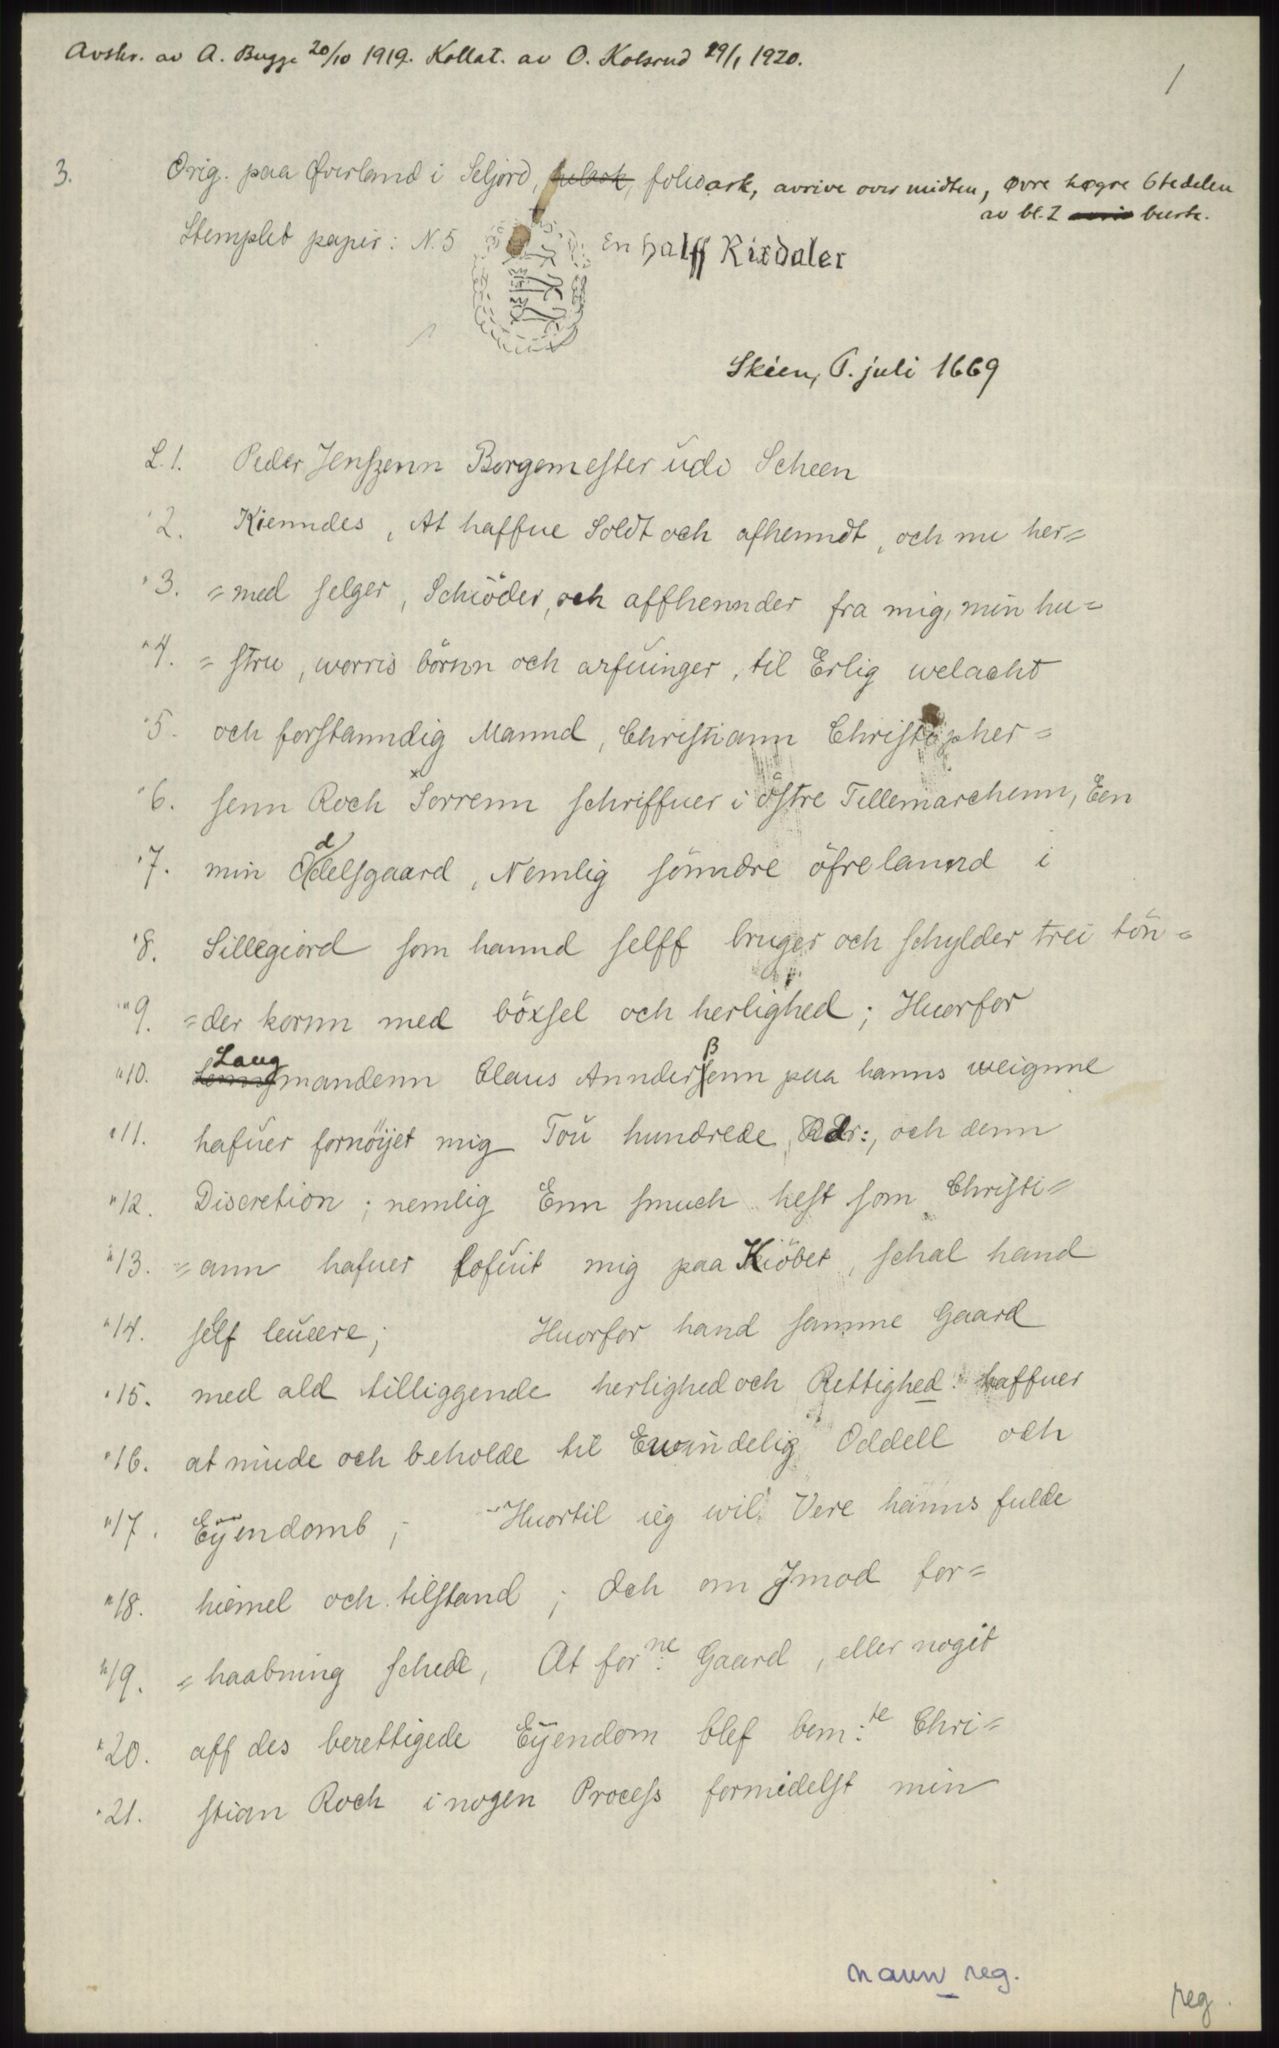 Avskr. av A. Bugge 20/10 1919. Kollat. av O. Kolsrud 29/1 1920.
1
3. Orig. paa Øverland i Seljord, folioark, avrive over midten, øvre høgre 6tedelen
av bl. 2 burte.
Stemplet papir: N. 5 En halff Rixdaler
Skien, 6. juli 1669
L. 1. Peder Jenszenn Borgemester udi Scheen
"2. Kienndes, At haffue Soldt och afhenndt, och nu her=
"3. =med selger, Schiöder, och affhennder fra mig, min hu=
"4. =stru, worris börnn och arfuinger, til Erlig welacht
"5. och forstanndig Mannd, Christiann Christopher=
"6. senn Roch Sorrenn schriffuer i östre Tellemarchenn, Een
"7. min Odelsgaard, Nemlig sönndre öfrelannd i
"8. Sillegiord som hannd selff bruger och schylder trei tön=
"9. =der kornn med böxsel och herlighed; Huorfor
"10. Laugmandenn Claus Annderßenn paa hanns weignne
"11. hafuer fornöijet mig Tou hundrede Rdr:, och denn
"12. Discretion; nemlig Enn smuch hest som Christi=
"13. =ann hafuer lofuit mig paa Kiöbet, schal hand
"14. self leuere; Huorfor hand samme Gaard
"15. med ald tilliggende herlighed och Rettighed haffuer
"16. at niude och beholde til Ewindelig Oddell och
"17. Eijendomb; Huortil ieg wil Vere hanns fulde
"18. hiemel och tilstand; Och om Jmod for=
"19. =haabning schede, At forne: Gaard, eller nogit
"20. aff des berettigede Eijendom blef bem:te Chri=
"21. stian Roch i nogen Process formidelst min
navn reg.
reg.